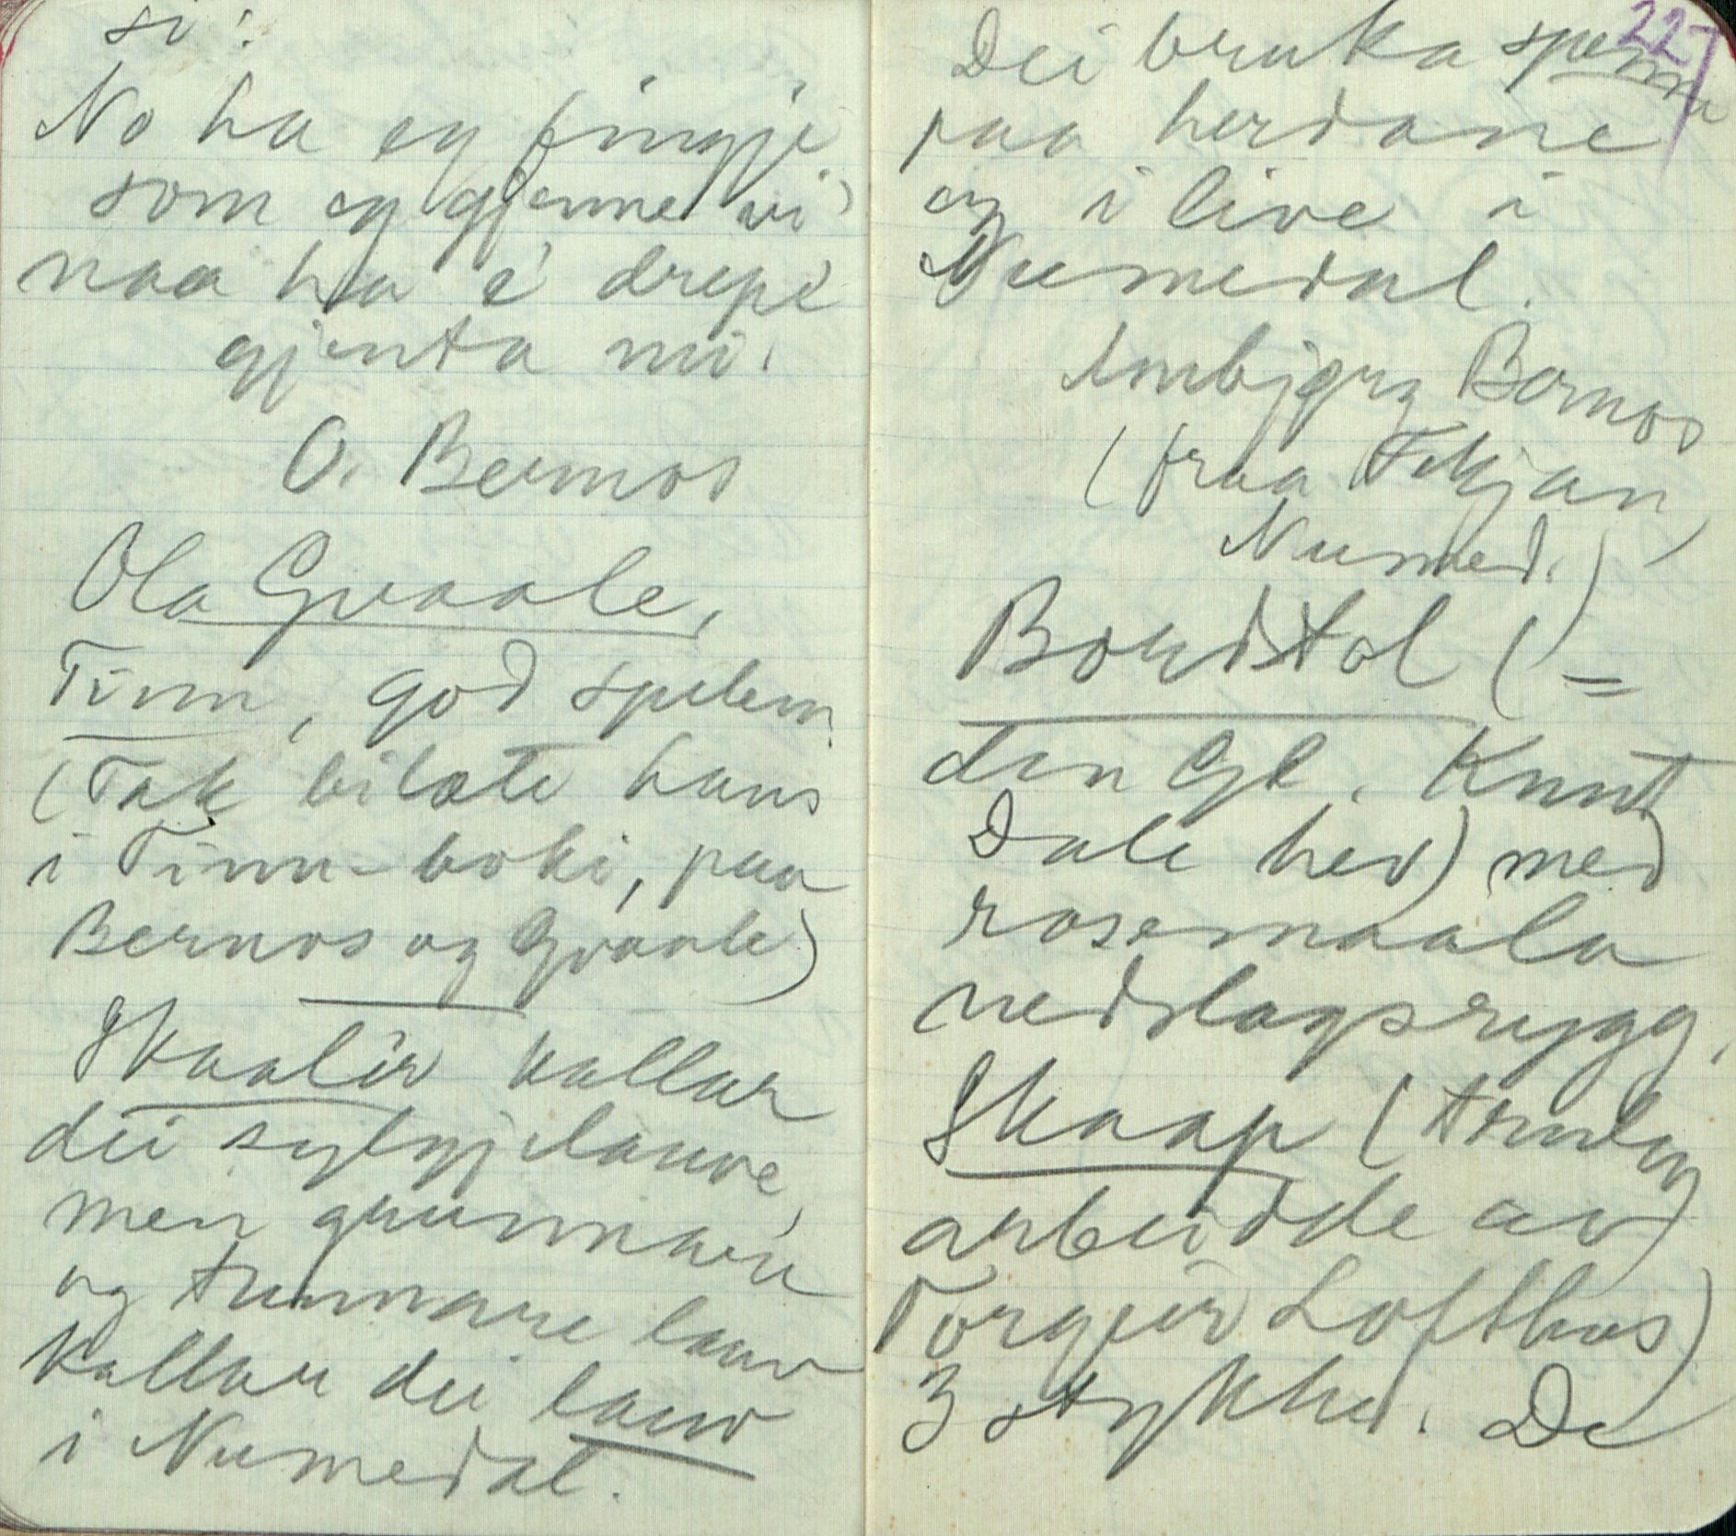 si:
No ha eg fingje
som eg gjenne vi
naa ha e' drepe
gjenta mi.
O. Bernos
Ola Gvaale,
Tinn, god spelem.
(Tak bilæte hans
i Tinn-boki, paa
Bernos og Gvaale)
Skaalir kallar
dei sylgjelauve,
men grunnare
og tunnare lauv
kallar dei lauv
i Numedal.
227
Dei bruka spenna
paa herdane
og i live i
Numedal.
Ambjørg Bernos
(fraa Tekjan,
Numed.)
Bordstol (=
den Gl. Knut
Dale hev) med
rosemaala
nedslagsrygg,
Skaap (
arbeidde av
Torgeir Lofthus)
3 stykke. De